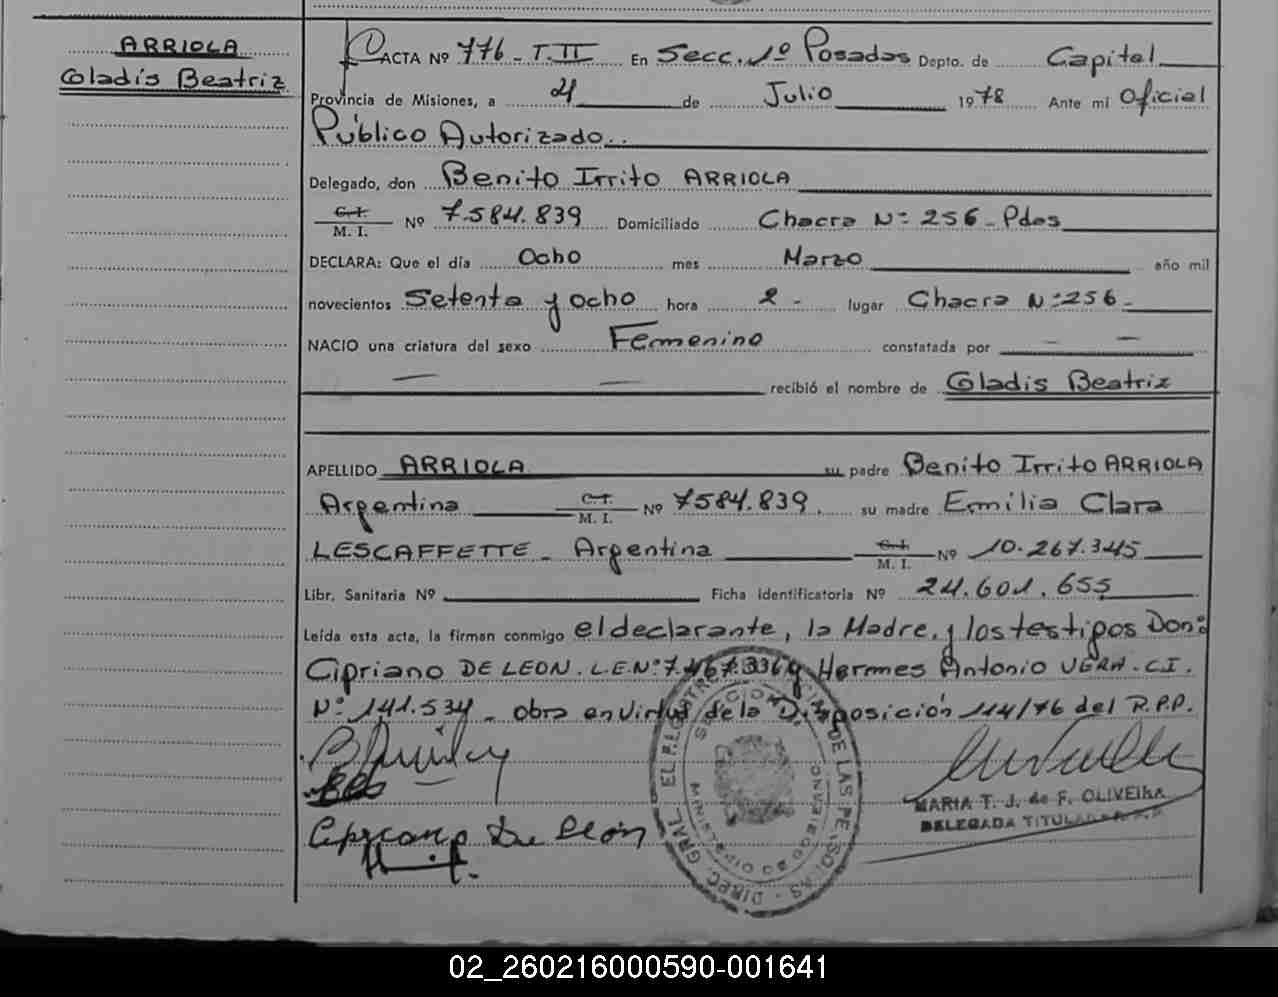 ARRIOLA
Gladis Beatriz
ACTA Nº 776 - T. II En Secc. 1º Posadas Depto. de Capital
Provincia de Misiones, a 21 de Julio 1978 Ante mi Oficial
Público Autorizado..
Delegado, don Benito Irrito ARRIOLA
C. I. M. I. Nº 7.584.839 Domiciliado Chacra Nº 256 - Pdas
DECLARA: Que el día Ocho mes Marzo año mil
novecientos Setenta y ocho hora 2 - lugar Chacra Nº 256 -
NACIO una criatura del sexo Femenino constatada por — —
— — recibió el nombre de Gladis Beatriz
APELLIDO ARRIOLA su padre Benito Irrito ARRIOLA
Argentina C. I. M. I. Nº 7584.839. su madre Emilia Clara
LESCAFFETTE - Argentina C. I. M. I. Nº 10.267.345
Libr. Sanitaria Nº Ficha Identificatoria Nº 24.601.655
Leída esta acta, la firman conmigo el declarante, la Madre, y los testigos Don:
Cipriano DE LEON. L.E. Nº 7.467.336 y Hermes Antonio VERA. C.I.
Nº 141.534 - obra en virtud de la Disposición 114/76 del R.P.P.
Cipriano De León
MARIA T. J. de F. OLIVEIRA
DELEGADA TITULAR
DIREC. GRAL. EL REGISTRO DE LAS PERSONAS
MINISTERIO DE GOBIERNO
02_260216000590-001641